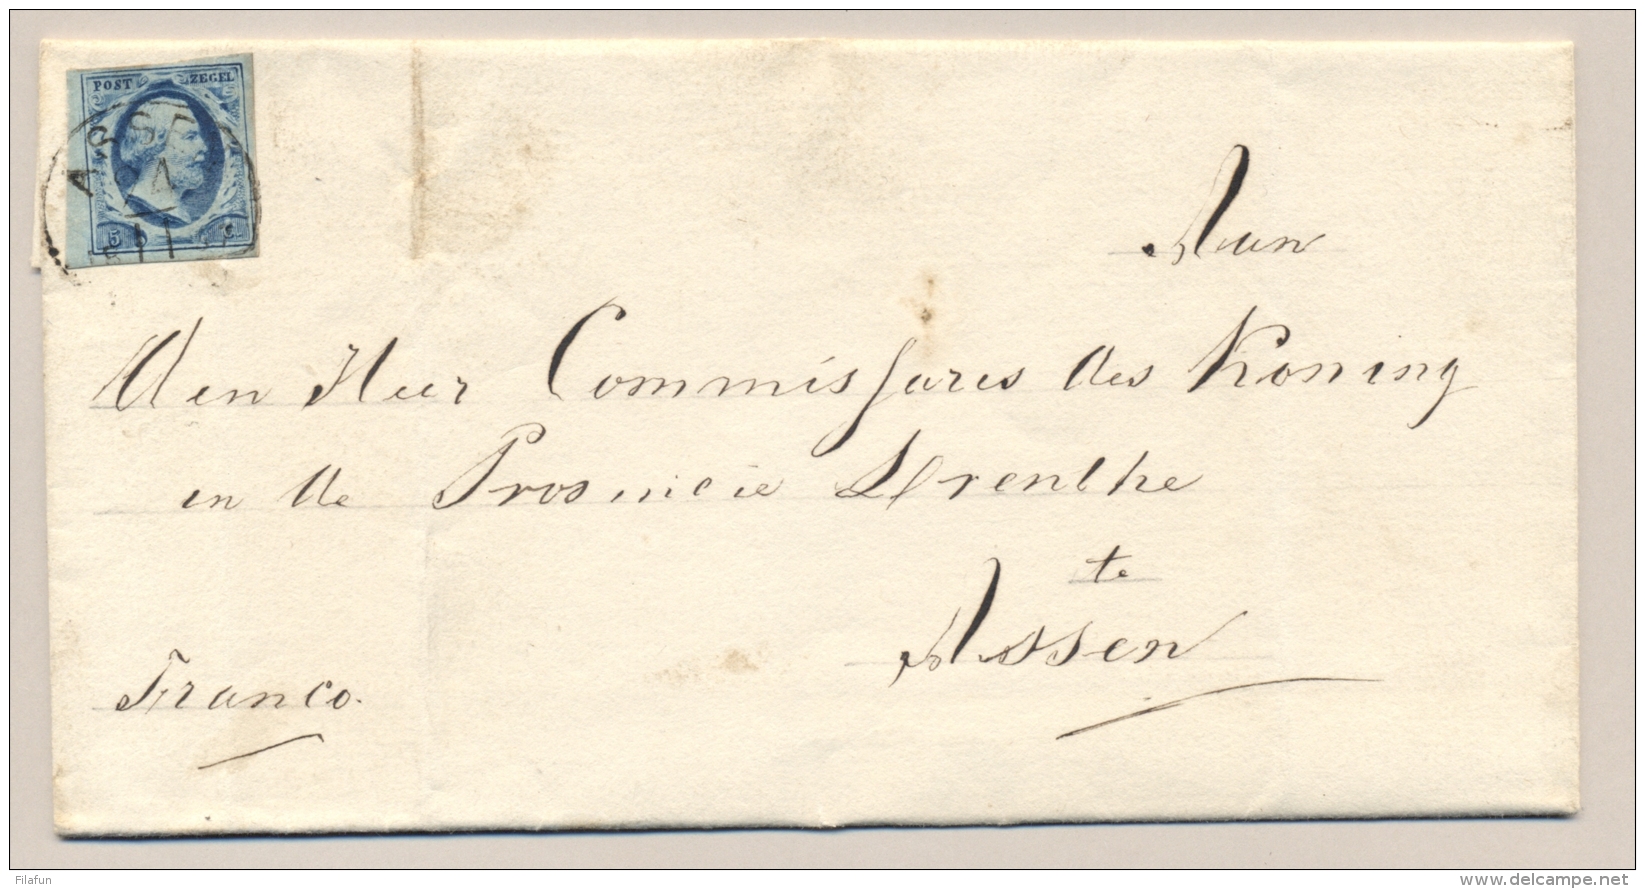 POST ZEGEL
ASSEN
5 C.
Aan
den Heer Commissaris des Koning
in de Provincie Drenthe
te
Assen
Franco.
Filafun
www.delcampe.net